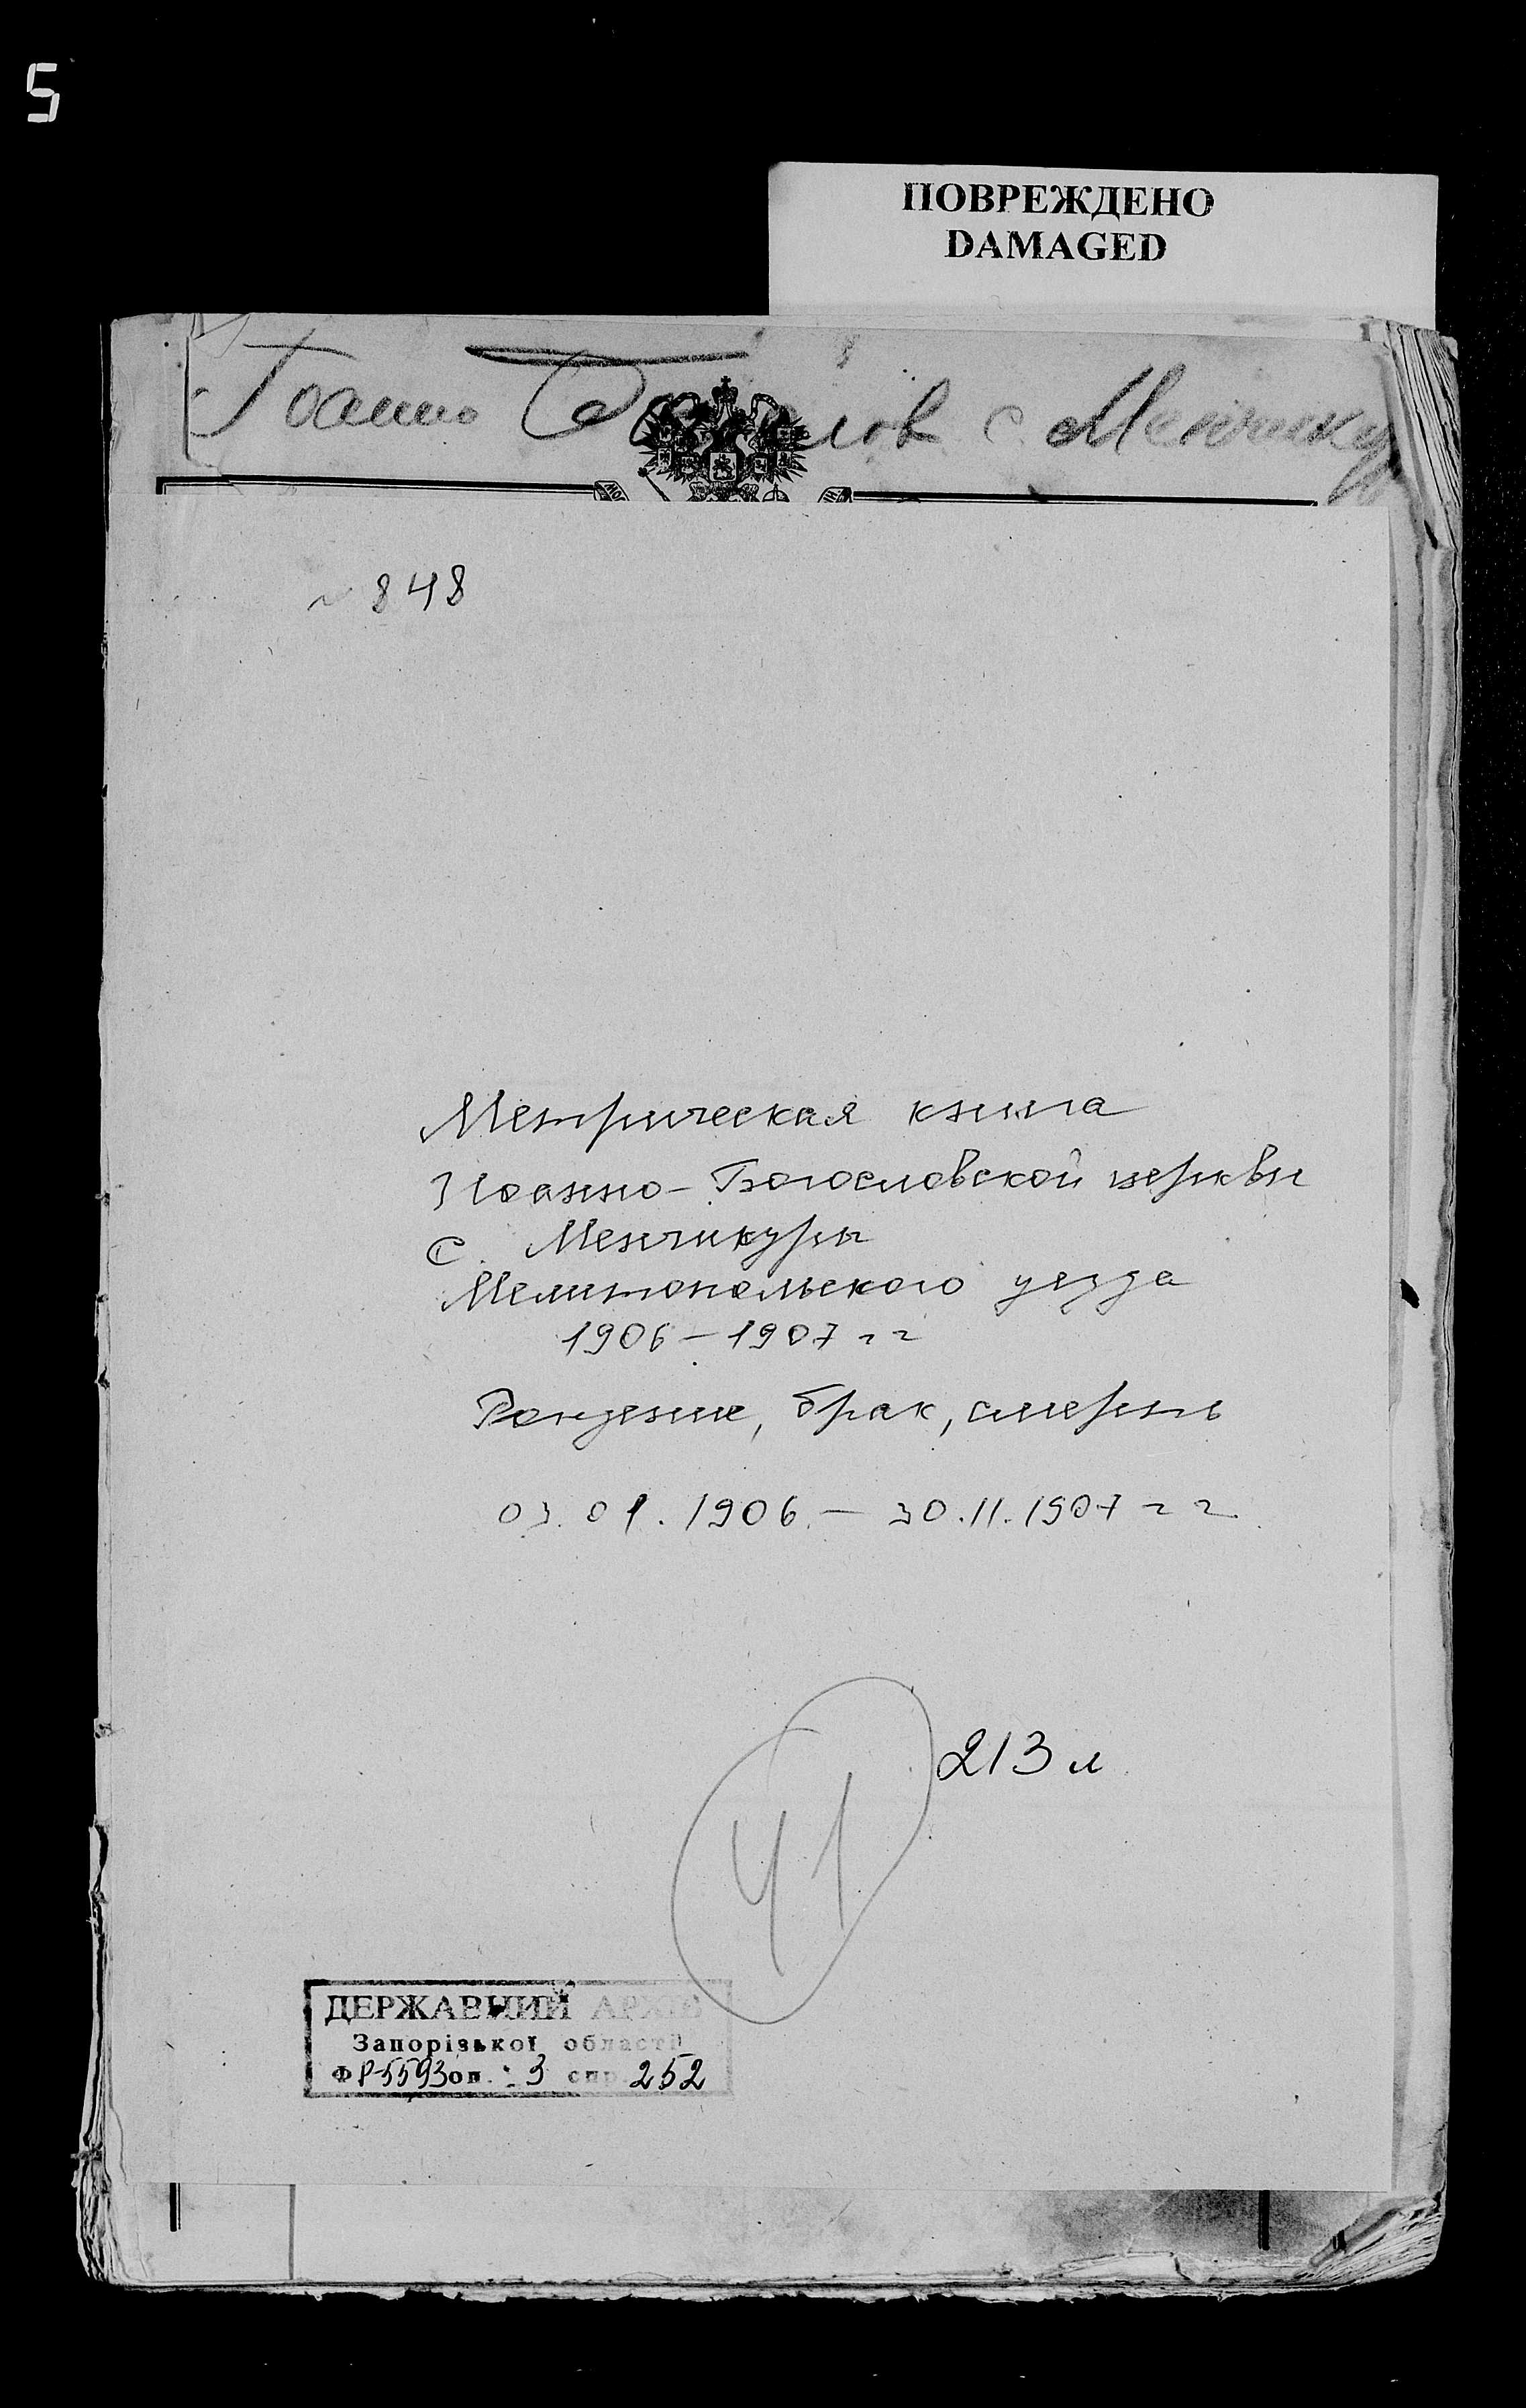 5
ПОВРЕЖДЕНО
DAMAGED
Іоанно с. Менчику
№ 848
Метрическая книга
Иоанно-Богословской церкви
с. Менчикуры
Мелитопольского уезда
1906 – 1907 гг
Рождение, брак, смерть
03.01.1906. – 30.11.1907 гг.
213 л.
41
ДЕРЖАВНИЙ АРХІВ
Запорізької області
Ф Р-5593 оп. 3 спр. 252